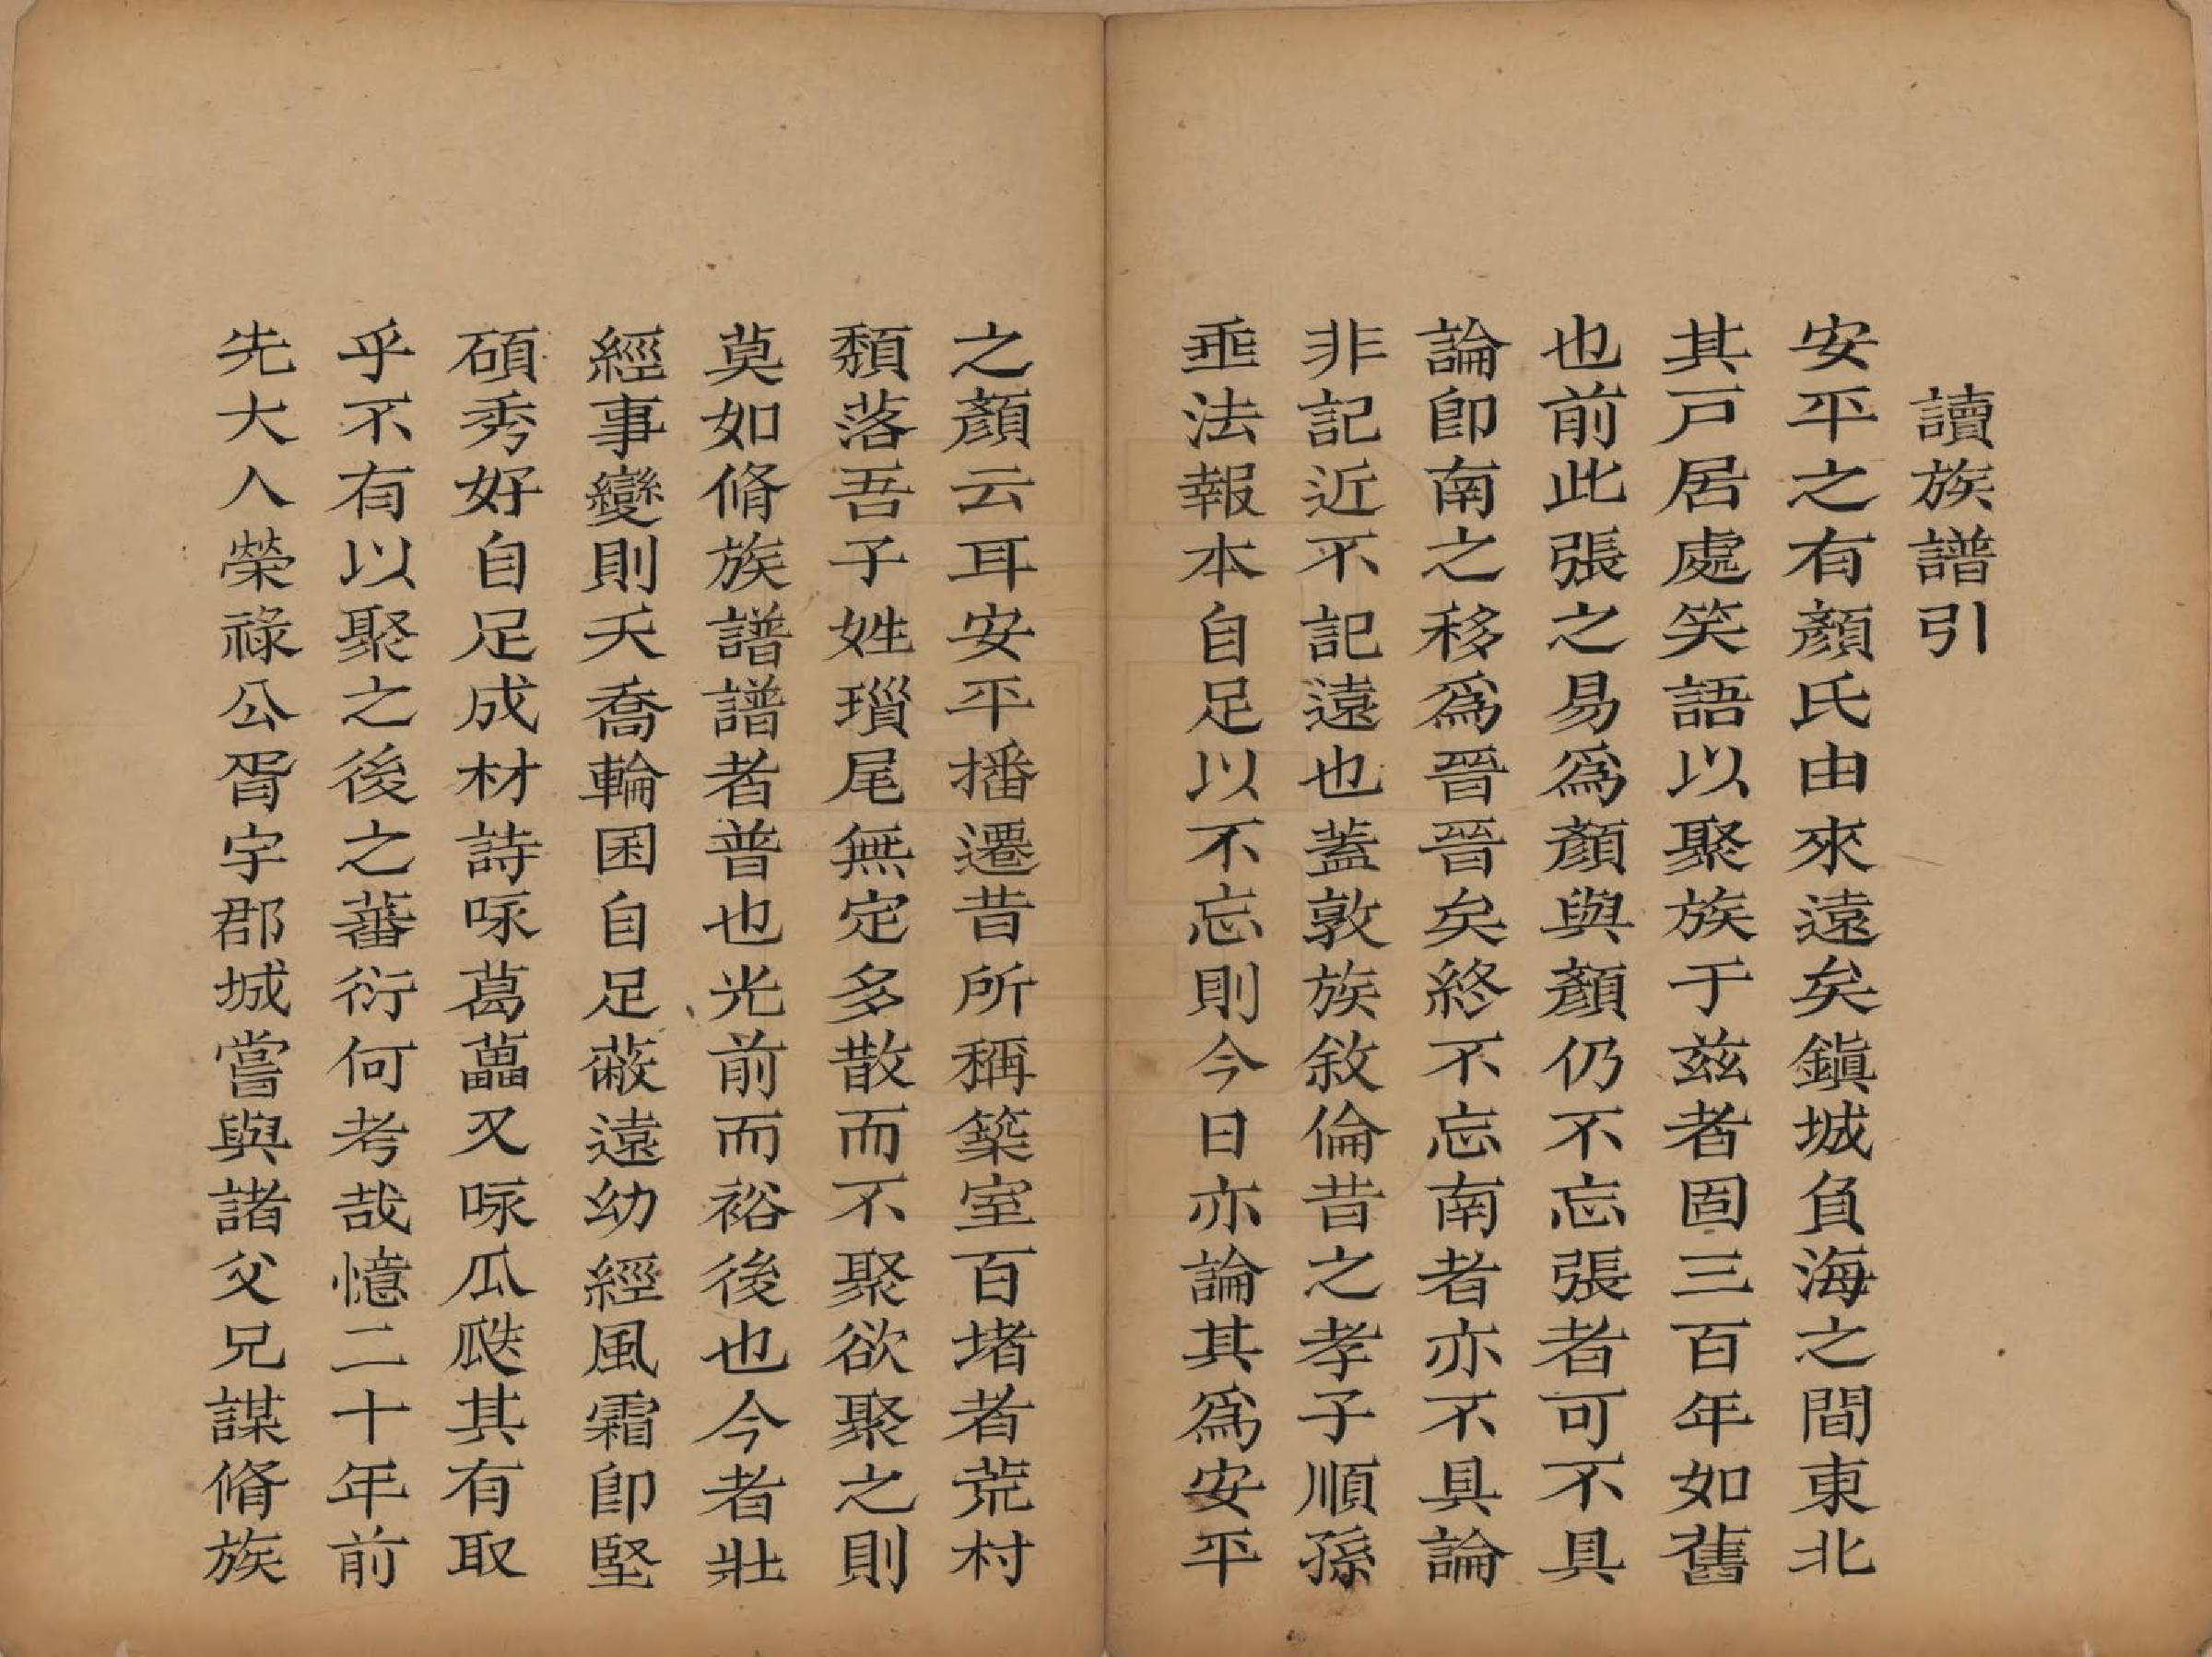 讀族譜引
安平之有顏氏由來遠矣鎮城負海之間東北
其戸居處笑語以聚族于茲者固三百年如舊
也前此張之易爲顏與顏仍不忘張者可不具
論卽南之移爲晉晉矣終不忘南者亦不具論
非記近不記遠也葢敦族敘倫昔之孝子順孫
垂法報本自足以不忘則今日亦論其爲安平
之顏云耳安平播遷昔所稱築室百堵者荒村
頽落吾子姓瑣尾無定多散而不聚欲聚之則
莫如脩族譜譜者普也光前而裕後也今者壯
經事變則夭喬輪囷自足蔽遠幼經風霜卽堅
碩秀好自足成材詩咏葛藟又咏瓜瓞其有取
乎不有以聚之後之蕃衍何考哉憶二十年前
先大人榮祿公胥宇郡城嘗與諸父兄謀脩族